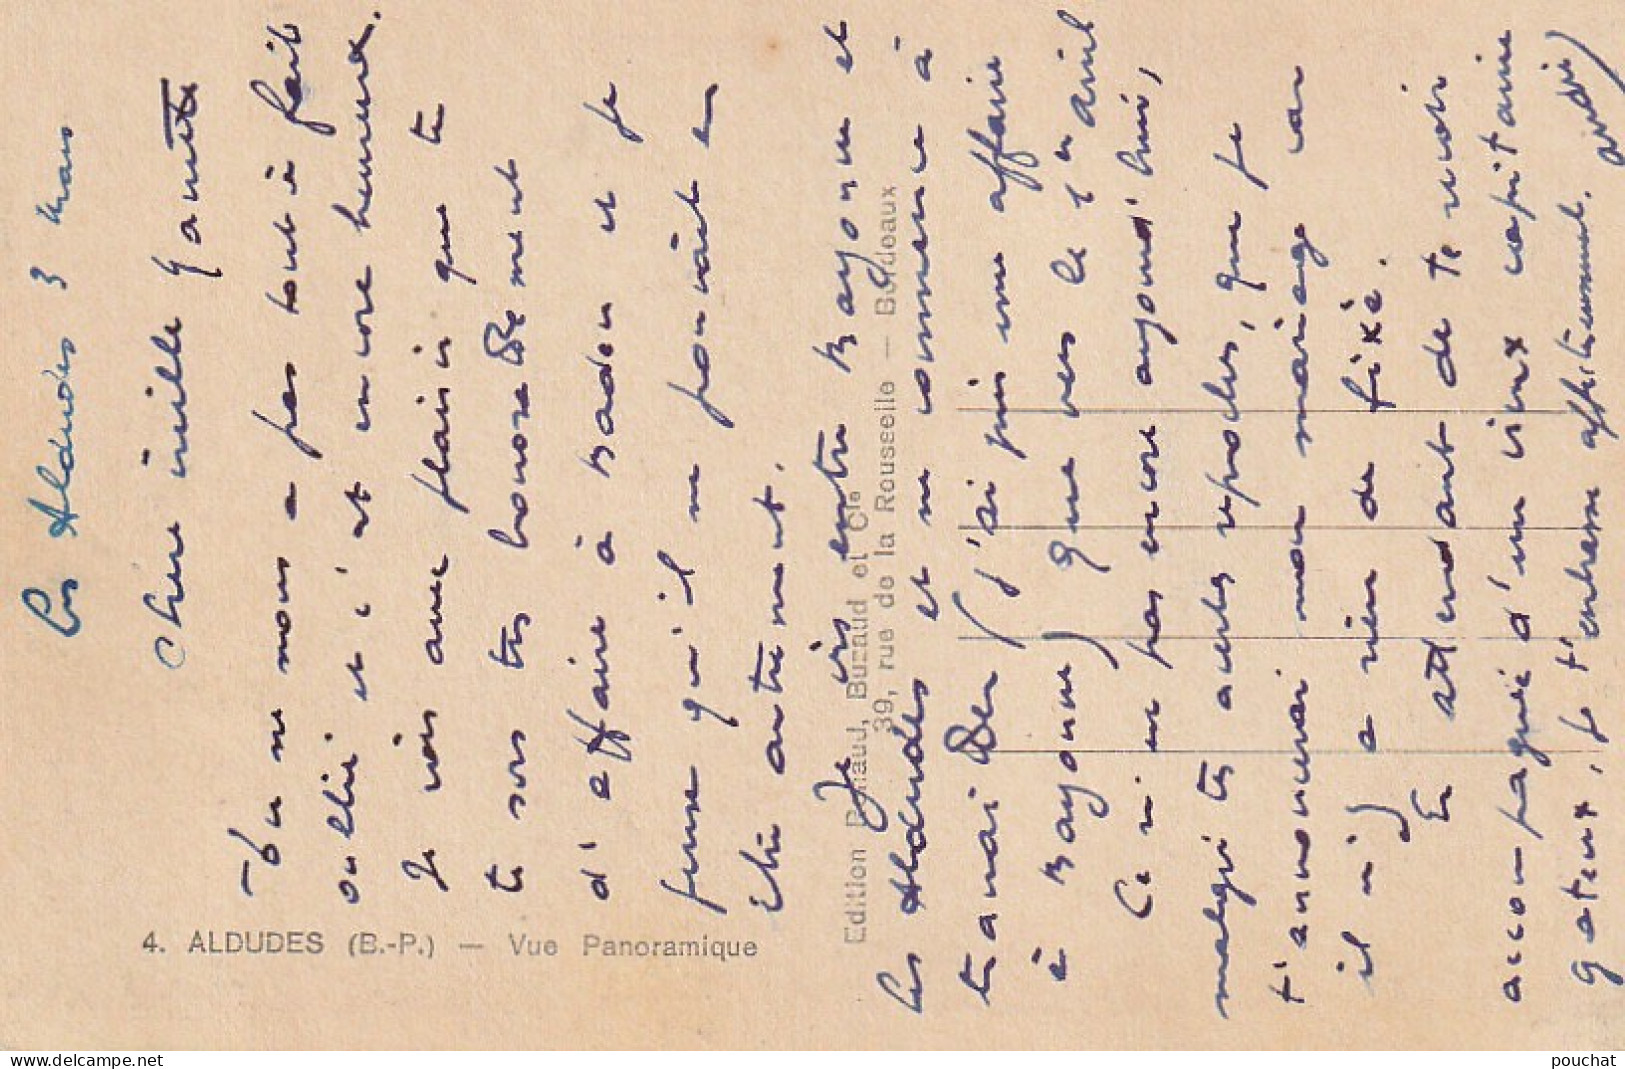 Les Aldudes 3 mars
Chère vieille Ganette
Tu ne nous a pas tout à fait
oublié et c'est encore heureux.
Je vois avec plaisir que te
te sors très honorablement
d'affaire à Madon et je
pense qu'il ne pouvait en
être autrement.
Je vis entre Bayonne et
les Aldudes et ne commence à
(j'ai pris une affaire
à Bayonne) que vers le 1er avril
Ce n'est pas encore aujourd'hui,
malgré tes acerbes reproches, que je
t'annoncerai mon mariage car
il n'y a rien de fixé.
En attendant de te revoir
accompagnée d'un vieux capitaine
gateux, je t'embrasse affectueusement.
4. ALDUDES (B.-P.) — Vue Panoramique
Edition Buzaud et Cie
39, rue de la Rousselle — Bordeaux
pouchat